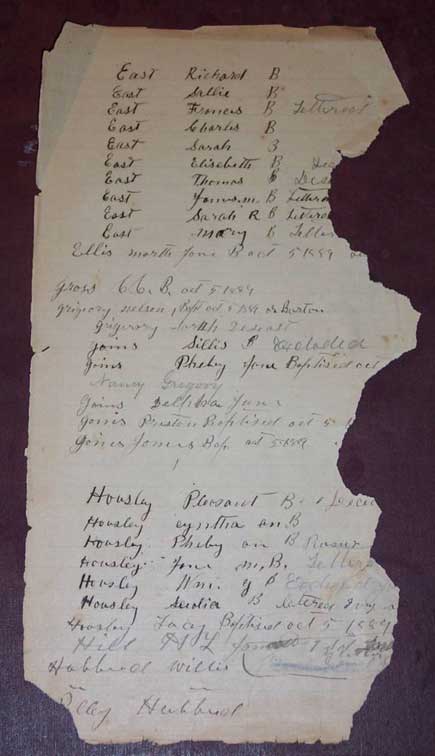 East Richard B
East Sallie B
East Francis B Lettered
East Charles B
East Sarah B
East Elisebeth B Dec
East Thomas B Dece
East James. m. B Lettere
East Sarah R B Lettere
East mary B Letter
Ellis marth Jane B oct 5 1889
Gross C. C. B. oct 5 1889
grigory nelson, Bapt oct 5 1889 Burton
grigrory Sarah Deseast
Joins Sillis B Excluded
Joins Pheby Jane Baptised oct
Nancy Gregory
Joins Jane
Joins Preston Baptised oct 5
Joins James Bap. oct 5 1889
Housley Pleasant B Dece
Housley cyntha an. B
Housley Pheby an B
Housley Jane m. B. Letter
Housley Wm. y B
Housley B latered
Housley Lacey Baptised oct 5 1889
Hill H L
Hubburd Willis
Hubburd